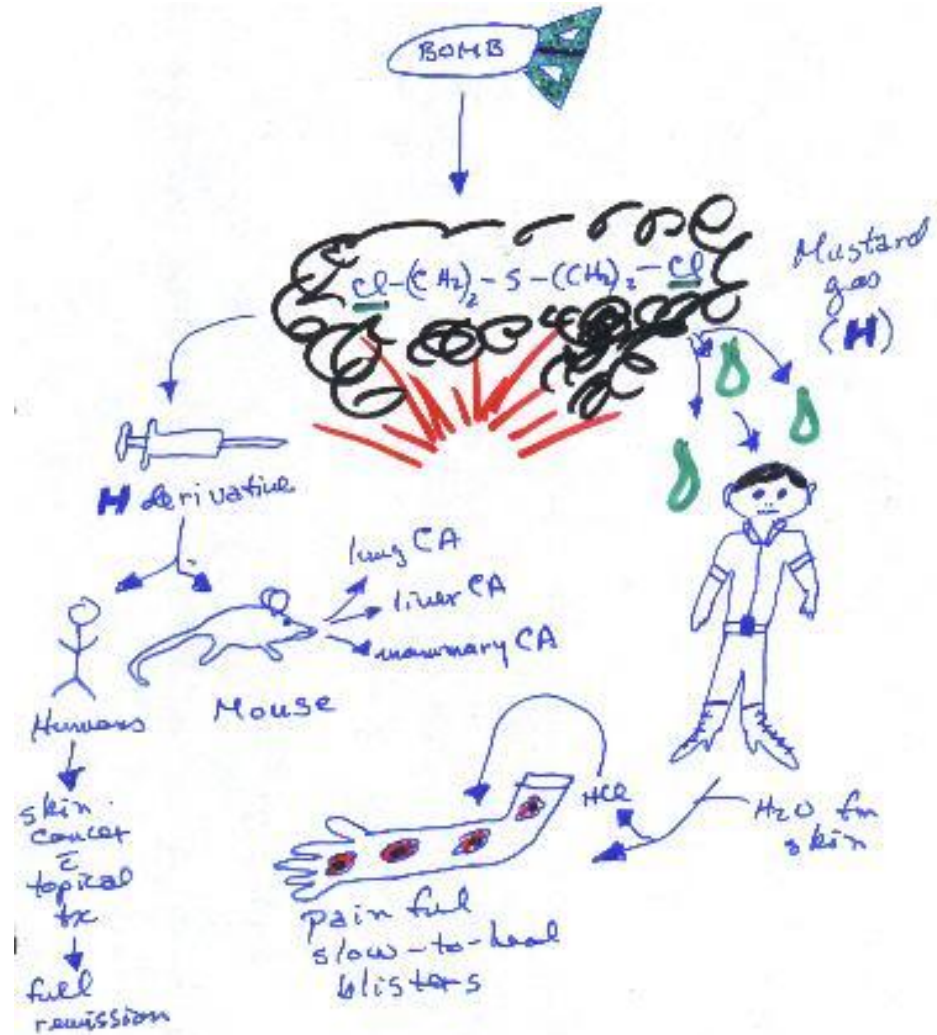 BOMB
Cl-(CH₂)₂-S-(CH₂)₂-Cl
Mustard
gas
(H)
H derivative
lung CA
liver CA
mammary CA
Mouse
Humans
skin
cancer
c̄
topical
tx
full
remission
HCl
H₂O fm
skin
Pain ful
slow-to-heal
blisters